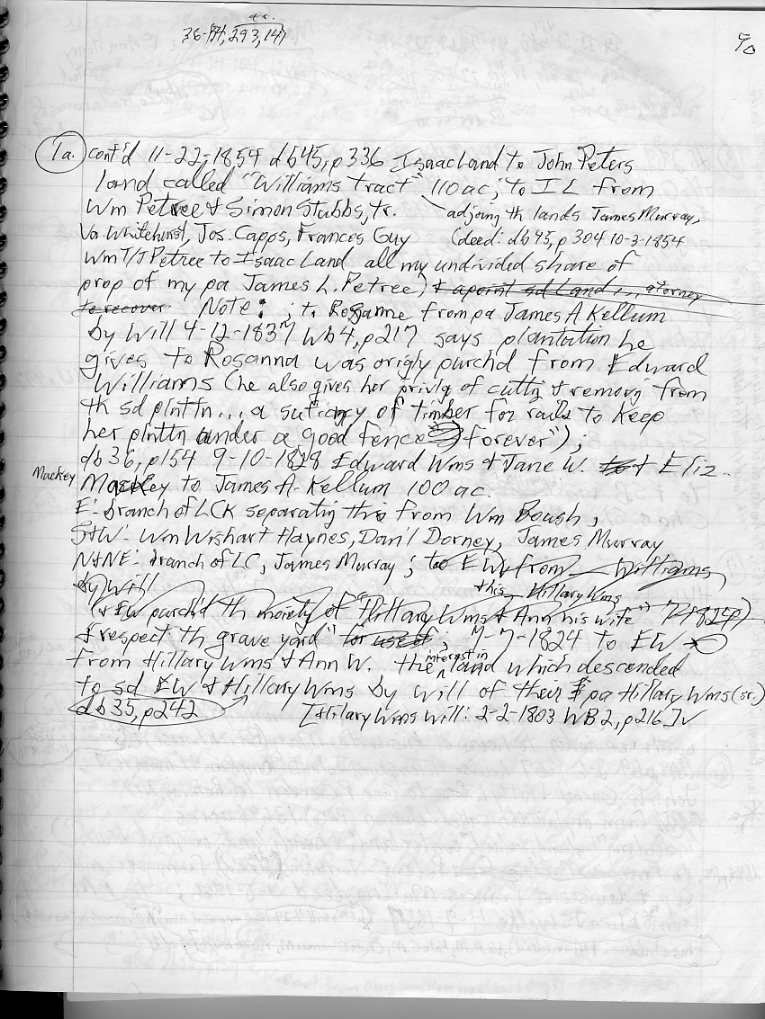 tr.
36-171, 293, 147
90
1a. cont'd 11-22-1854 db45, p336 Isaac Land to John Peters
land called "Williams tract" 110 ac; to I L from
Wm Petree & Simon Stubbs, tr. adjoing th lands James Murray,
Va Whitehurst, Jos. Capps, Frances Guy (deed: db45, p304 10-3-1854
Wm T/J Petree to Isaac Land all my undivided share of
prop of my pa James L. Petree) & apoint sd Land ... atorney
to recover Note: ; to Rosanne from pa James A Kellum
by Will 4-12-1837 Wb4, p217 says plantation he
gives to Rosanna was origly purchd from Edward
Williams (he also gives her privlg of cuttig & removig from
th sd plnttn... a suficiency of timber for rails to keep
her plnttn under a good fence forever");
db36, p154 9-10-1828 Edward Wms & Jane W. & Eliz.
Mackey
Mackey to James A. Kellum 100 ac.
E: branch of LCK separatig this from Wm Boush,
S&W: Wm Wishart Haynes, Dan'l Dorney, James Murray
N&NE: branch of LC, James Murray; to EW from Williams
by will
this Hillary Wms
(& EW purch'd th moiety of "Hillary Wms & Ann his wife" 7-1825?)
& respect th grave yard" for use of; 7-7-1824 to EW
from Hillary Wms & Ann W. the interest in land which descended
to sd EW & Hillary Wms by will of their pa Hillary Wms (sr.)
db35, p242 [Hilary Wms will: 2-2-1803 WB2, p216] v